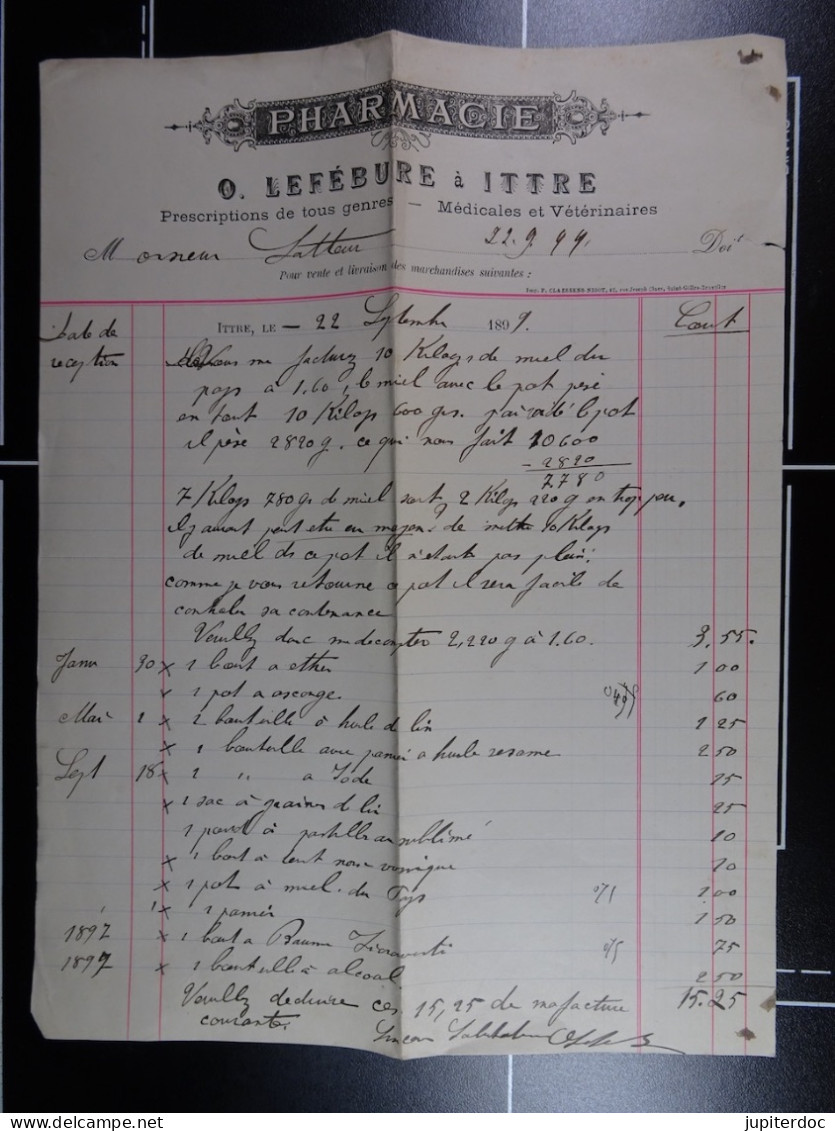 PHARMACIE
O. LEFÉBURE à ITTRE
Prescriptions de tous genres — Médicales et Vétérinaires
Monsieur 22.9.99. Doit
Pour vente et livraison des marchandises suivantes :
Date de ITTRE, LE — 22 Septembre 1899. Cout
reception Vous me facturez 10 Kilogs de miel du
pays à 1.60, le miel avec le pot pèse
en tout 10 Kilogs 600 grs. j'ai vidé le pot
il pèse 2820 g. ce qui nous fait 10600
- 2820
7780
7 Kilogs 780 gs de miel soit 2 Kilogs 220 g en trop peu.
moyen de mettre 10 Kilogs
de miel ds ce pot il n'étant pas plein.
comme je vous retourne ce pot il sera facile de
controler sa contenance
Veuillez donc me décompter 2,220 g à 1.60. 3.55.
Janv 30 x 1 bout a ether 1 00
x 1 pot a 60
Mai 1 x 2 bouteille à huile de lin 1 25
x 1 bouteille avec panier a huile 2 50
Sept 18 x 2 " a Iode 25
x 1 sac à graines de lin 25
1 à pastilles au sublimé 10
x 1 bout à noix vomique 20
x 1 pot à miel du Pays 1 00
1 x 1 panier 1 50
1897 x 1 bout a Baume 75
1897 x 1 bouteille à alcool 2 50
Veuillez deduire ces 15,25 de ma facture 15.25
courante.
jupiterdoc
delcampe.net